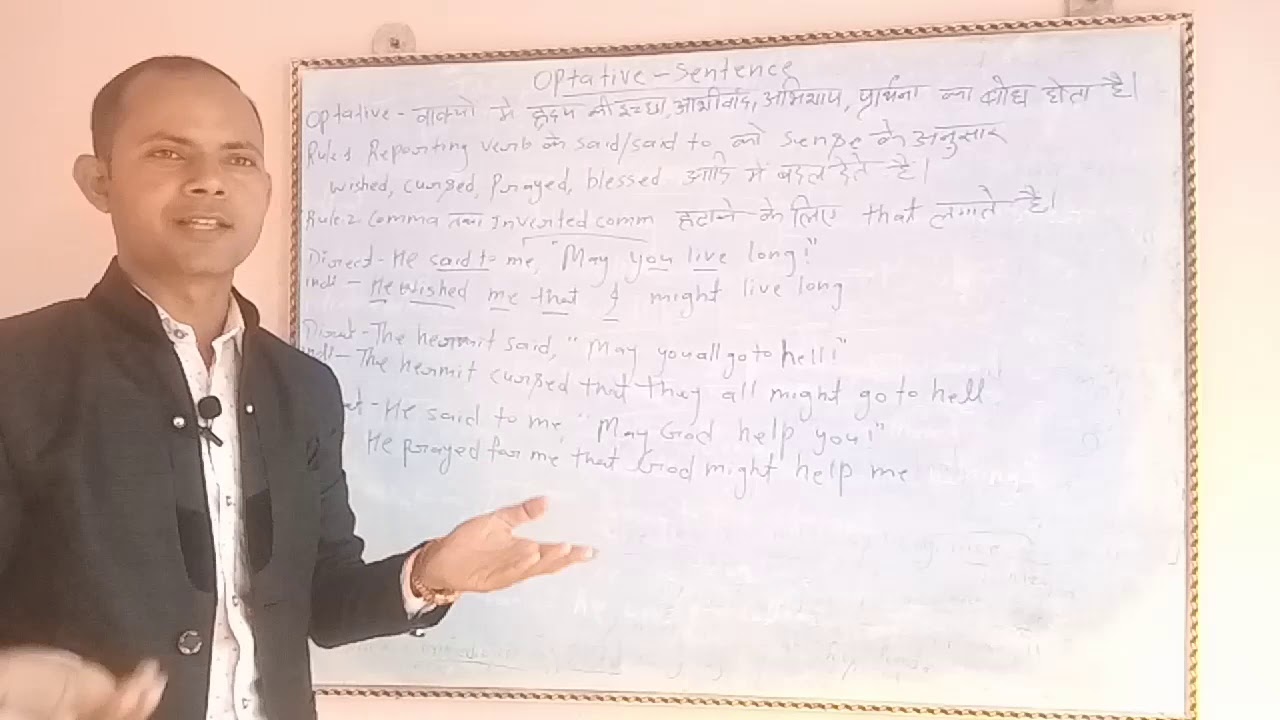 Optative-Sentence
Optative - वाक्यो मे हृदय की इच्छा, आशीर्वाद, अभिशाप, प्रार्थना का बोध होता है।
Rule1 Reporting verb के said/said to को sense के अनुसार
wished, cursed, prayed, blessed आदि में बदल देते है।
Rule:2 Comma तथा Inverted comm हटाने के लिए that लगाते है।
Direct-He said to me, "May you live long!"
indi - He wished me that I might live long
Direct-The hermit said, "May you all go to hell!"
indi- The hermit cursed that they all might go to hell
-He said to me, "May God help you!"
He prayed for me that God might help me